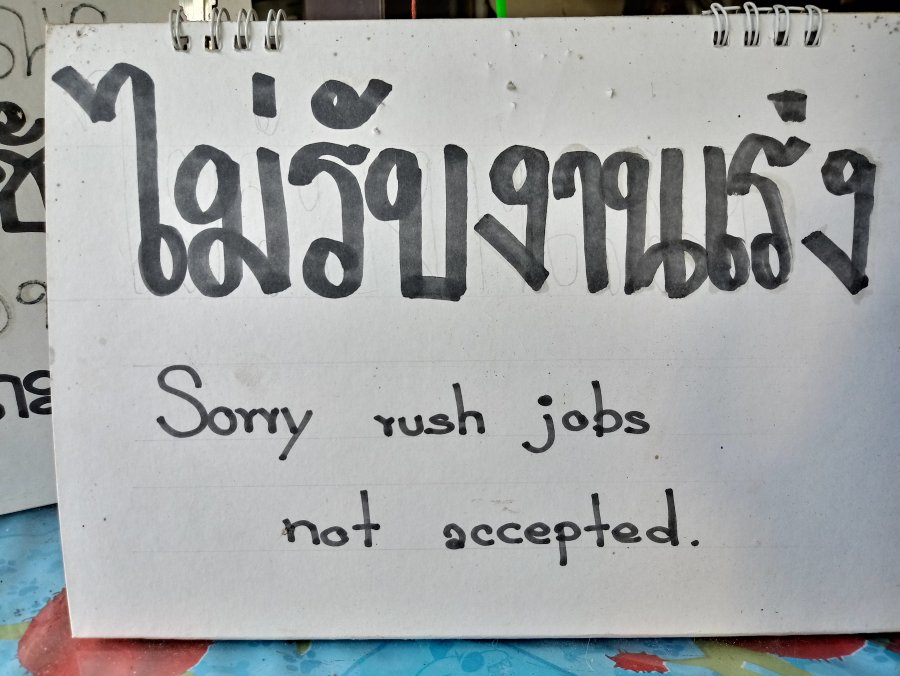 ไม่รับงานเร่ง
Sorry rush jobs
not accepted.